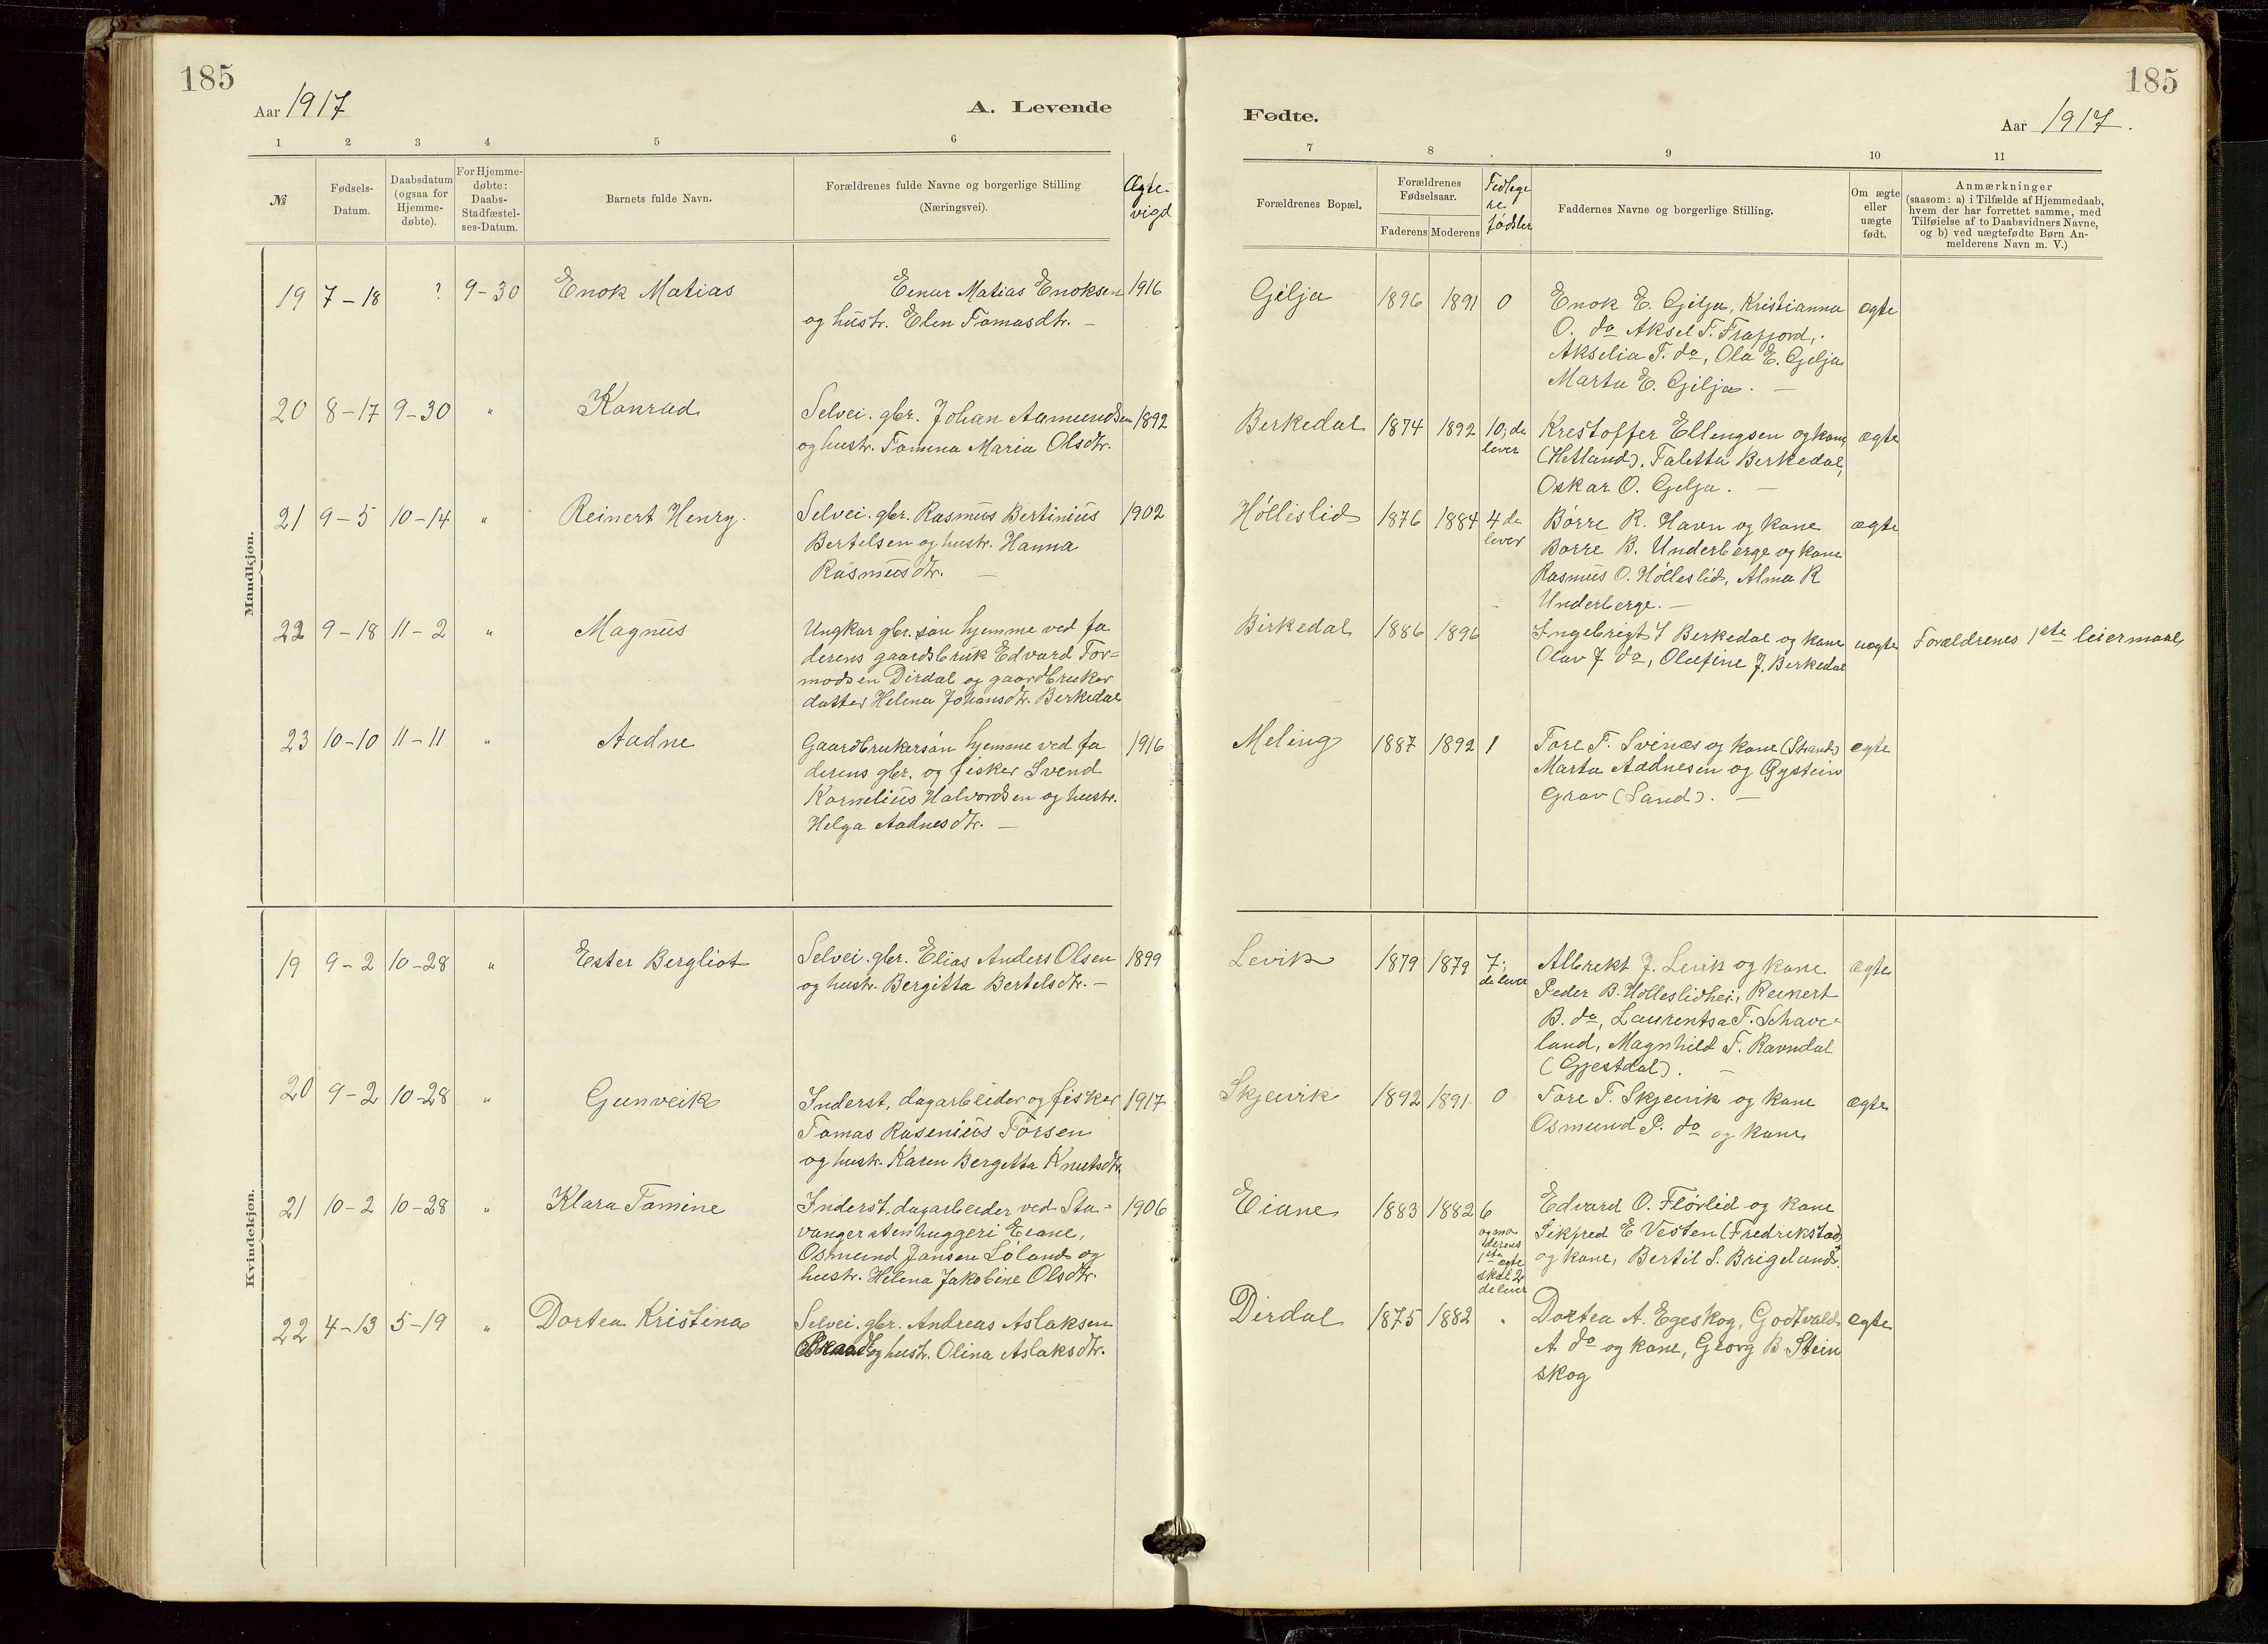 185
Aar 1917
A. Levende
1 2 3 4 5 6
№
Fødsels-
Datum.
Daabsdatum
(ogsaa for
Hjemme-
døbte).
For Hjemme-
døbte:
Daabs-
Stadfæstel-
ses-Datum.
Barnets fulde Navn.
Forældrenes fulde Navne og borgerlige Stilling
(Næringsvei).
Ægte-
vigd
Mandkjøn.
19 7-18 ? 9-30 Enok Matias Einar Matias Enoksen 1916
og hustr. Elen Tomasdtr. —
20 8-17 9-30 " Konrad Selvei. gbr. Johan Aamundsen 1892
og hustr. Tomina Maria Olsdtr.
21 9-5 10-14 " Reinert Henry. Selvei. gbr. Rasmus Bertinius 1902
Bertelsen og hustr. Hanna
Rasmusdtr. —
22 9-18 11-2 " Magnus Ungkar gbr. søn hjemme ved fa
derens gaardsbruk Edvard Tor=
modsen Dirdal og gaardbruker
datter Helena Johansdtr. Berkedal
23 10-10 11-11 " Aadne Gaardbrukersøn hjemme ved fa 1916
derens gbr. og fisker Svend
Kornelius Halvordsen og hustr.
Helga Aadnesdtr. —
Kvindekjøn.
19 9-2 10-28 " Ester Bergliot Selvei. gbr. Elias Anders Olsen 1899
og hustr. Bergitta Bertelsdtr. —
20 9-2 10-28 " Gunveik Inderst, dagarbeider og fisker 1917
Tomas Rasenius Torsen
og hustr. Karen Bergetta Knutsdtr.
21 10-2 10-28 " Klara Tomine Inderst, dagarbeider ved Sta- 1906
vanger stenhuggeri Eiane,
Osmund Jansen Løland og
hustr. Helena Jakobine Olsdtr.
22 4-13 5-19 " Dortea Kristina Selvei. gbr. Andreas Aslaksen
og hustr. Olina Aslaksdtr.
185
Fødte.
Aar 1917.
7 8 9 10 11
Forældrenes Bopæl.
Forældrenes
Fødselsaar.
Faderens Moderens
Tidlige
re
fødsler
Faddernes Navne og borgerlige Stilling.
Om ægte
eller
uægte
født.
Anmærkninger
(saasom: a) i Tilfælde af Hjemmedaab,
hvem der har forrettet samme, med
Tilføielse af to Daabsvidners Navne,
og b) ved uægtefødte Børn An-
melderens Navn m. V.)
Gilja 1896 1891 0 Enok E. Gilja, Kristianna ægte
O. do Aksel T. Frafjord,
Akselia T. do, Ola E. Gilja
Marta E. Gilja. —
Berkedal 1874 1892 10; de Krestoffer Ellingsen og kone ægte
lever (Hetland). Taletta Berkedal,
Oskar O. Gilja. —
Høllislid 1876 1884 4 de Børre R. Havn og kone ægte
lever Børre B. Underberge og kone
Rasmus O. Hølleslid, Alma R
Underberge. —
Birkedal 1886 1896 Ingebrigt J Berkedal og kone uægte Forældrenes 1ste leiermaal
Olav J. do, Olufine J. Berkedal
Meling 1887 1892 1 Tore T. Svines og kone (Strand) ægte
Marta Aadnesen og Øystein
Grav (Sand). —
Levik 1879 1879 7; Albrekt J. Levik og kone ægte
de lever Peder B. Hølleslidhei, Reinert
B. do, Laurentsa T. Schave-
land, Magnhild T. Ravndal
(Gjestdal). —
Skjeivik 1892 1891 0 Tore T. Skjeivik og kone ægte
Osmund P. do og kone
Eiane 1883 1882 6 Edvard O. Flørlid og kone
og mo
derens
1ste ægte
skal 2
de lever
Sikfred E Vesten (Fredrikstad)
og kone, Bertil S. Brigeland.
Dirdal 1875 1882 " Dortea A. Egeskog, Godtvald ægte
A do og kone, Georg B Stein
skog